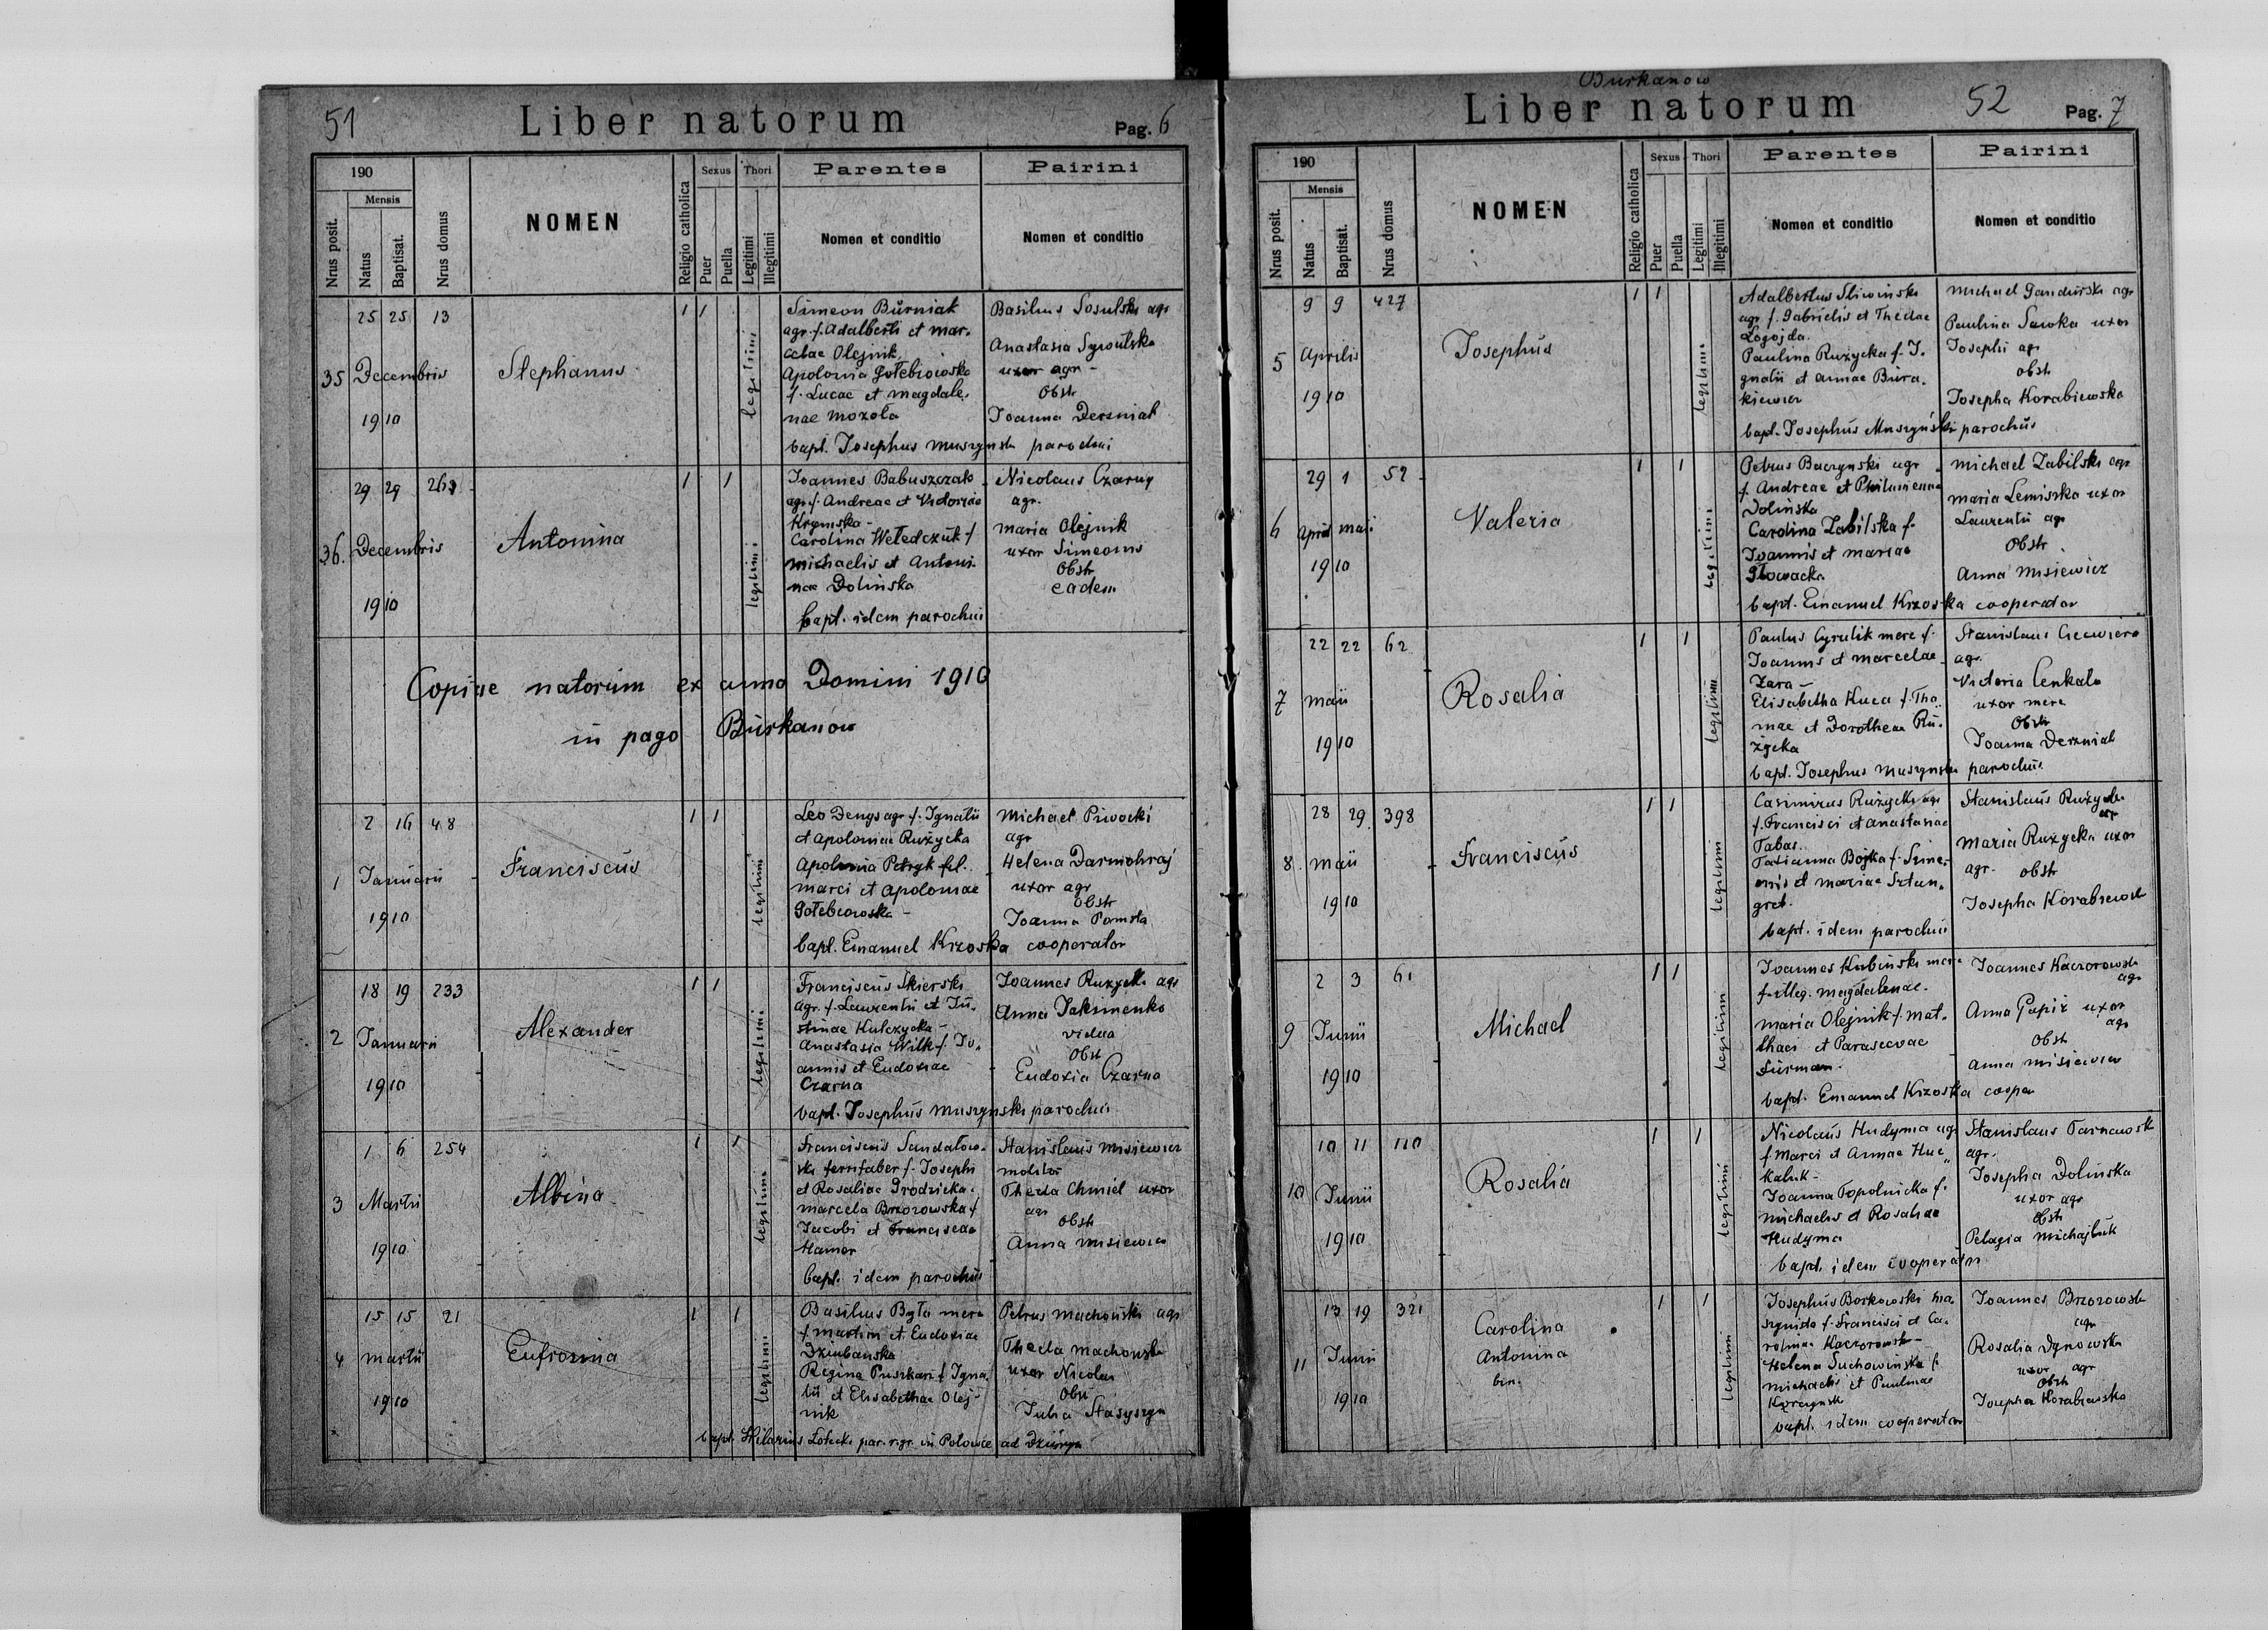 51
Liber natorum
Pag. 6
190
Mensis
Nrus posit.
Natus
Baptisat.
Nrus domus
NOMEN
Religio catholica
Sexus
Puer
Puella
Thori
Legitimi
Illegitimi
Parentes
Nomen et conditio
Pairini
Nomen et conditio
35
25 25 13
Decembris
1910
Stephanus
1 1
legitimi
Simeon Burniak
agr. f. Adalberti et Mar-
celae Olejnik.
Apolonia Gołębiowska
f. Lucae et Magdale-
nae Mozoła
bapt. Josephus Muszynski parochus
Basilius Sosulski agr
Anastasia
uxor agr -
Obstr
Joanna Derzniak
36.
29 29
Decembris
1910
Antonina
1 1
legitimi
Joannes Babuszczak
agr. f. Andreae et Victoriae
Krymska -
Carolina Weledczuk f
Michaelis et Antoni-
nae Dolinska
bapt. idem parochus
Nicolaus Czarny
agr.
Maria Olejnik
uxor Simeonis
Obstr
eadem
Copiae natorum ex anno Domini 1910
in pago Burkanow
1
2 16 48
Januarii
1910
Franciscus
1 1
legitimi
Leo Denys agr. f. Ignatii
et Apoloniae Rużycka
Apolonia Petryk fil.
Marci et Apoloniae
Gołębiowska -
bapt. Emanuel Krzoska cooperator
Michael Piwocki
agr
Helena Darmohraj
uxor agr
Obstr
Joanna Pomsta
2
18 19 233
Januarii
1910
Alexander
1 1
legitimi
Franciscus Skierski
agr. f. Laurentii et Ju-
stinae Kulczycka -
Anastasia Wilk f. Jo-
annis et Eudoxiae
Czarna
bapt. Josephus Muszynski parochus
Joannes Ruzycki agr
Anna Jakimenko
vidua
Obst
Eudoxia Czarna
3
1 6 254
Martii
1910
Albina
1 1
legitimi
Franciscus Sandałow-
ski ferrifaber f. Josephi
et Rosaliae Grodzicka.
Marcela Brzozowska f
Jacobi et Franciscae
Hamor
bapt. idem parochus
Stanislaus Misiewicz
molitor
Thecla Chmiel uxor
agr
Obstr
Anna Misiewicz
4
15 15 21
Martii
1910
Eufrosina
1 1
legitimi
Basilius Była merc
f. Martini et Eudoxiae
Dziubanska
Regina Puszkar f Igna-
tii et Elisabethae Olej-
nik
bapt. Hilarius par. r. gr. in Połowce ad Dzuryn
Petrus Machonski agr
Thecla Machonska
uxor Nicolai
Obst
Julia Stasyszyn
Burkanow
Liber natorum
52
Pag. 7
190
Mensis
Nrus posit.
Natus
Baptisat.
Nrus domus
NOMEN
Religio catholica
Sexus
Puer
Puella
Thori
Legitimi
Illegitimi
Parentes
Nomen et conditio
Pairini
Nomen et conditio
5
9 9 427
Aprilis
1910
Josephus
1 1
legitimi
Adalbertus Sliwinski
agr f. Gabrielis et Theclae
Łogojda.
Paulina Rużycka f. I-
gnatii et Annae Bura-
kiewicz
bapt. Josephus Muszyński parochus
Michael Gandurski agr
Paulina Sawka uxor
Josephi agr
obst
Josepha Korabiewska
6
29 1 52
Aprilis Maii
1910
Valeria
1 1
legitimi
Petrus Baczynski agr
f. Andreae et Philumenae
Dolinska
Carolina Zabilska f.
Joannis et Mariae
Głowacka
bapt. Emanuel Krzoska cooperator
Michael Zabilski agr
Maria Lemiszka uxor
Laurentii agr
Obstr
Anna Misiewicz
7
22 22 62
Maii
1910
Rosalia
1 1
legitimi
Paulus Cyrulik merc f.
Joannis et Marcelae
Zara -
Elisabetha Kuca f. Tho-
mae et Dorotheae Ru-
życka
bapt. Josephus Muszynski parochus
Stanislaus
agr.
Victoria Cenkała
uxor merc
Obstr
Joanna Derzniak
8.
28 29 398
Maii
1910
Franciscus
1 1
legitimi
Casimirus Rużycki agr
f. Francisci et Anastasiae
Tabas.
Tatianna Bojka f. Sime-
onis et Mariae Sztan-
gret.
bapt. idem parochus
Stanislaus Rużycki
agr
Maria Ruzycka uxor
agr. obstr
Josepha Korabiewsk
9
2 3 61
Junii
1910
Michael
1 1
legitimi
Joannes Kubinski merc
f. illeg. Magdalenae.
Maria Olejnik f. Mat-
thaei et Parascevae
Furman.
bapt. Emanuel Krzoska cooper
Joannes Kaczorowski
agr
Anna Papiż uxor
agr
Obstr
Anna Misiewicz
10
10 11 110
Junii
1910
Rosalia
1 1
legitimi
Nicolaus Hudyma agr
f Marci et Annae Huc-
kaluk -
Joanna Topolnicka f.
Michaelis et Rosaliae
Hudyma
bapt. idem cooperator
Stanislaus Tarnawski
agr.
Josepha Dolinska
uxor agr
Obstr
Pelagia Michajluk
11
13 19 321
Junii
1910
Carolina
Antonina
bin.
1 1
legitimi
Josephus Borkowski ma-
szynista f. Francisci et Ca-
rolinae Kaczorowsk -
Helena Suchowinska f.
Michaelis et Paulinae
Korczynsk
bapt. idem cooperator
Joannes Brzozowski
agr
Rosalia Dynowska
uxor agr
Obstr
Josepha Korabiewska